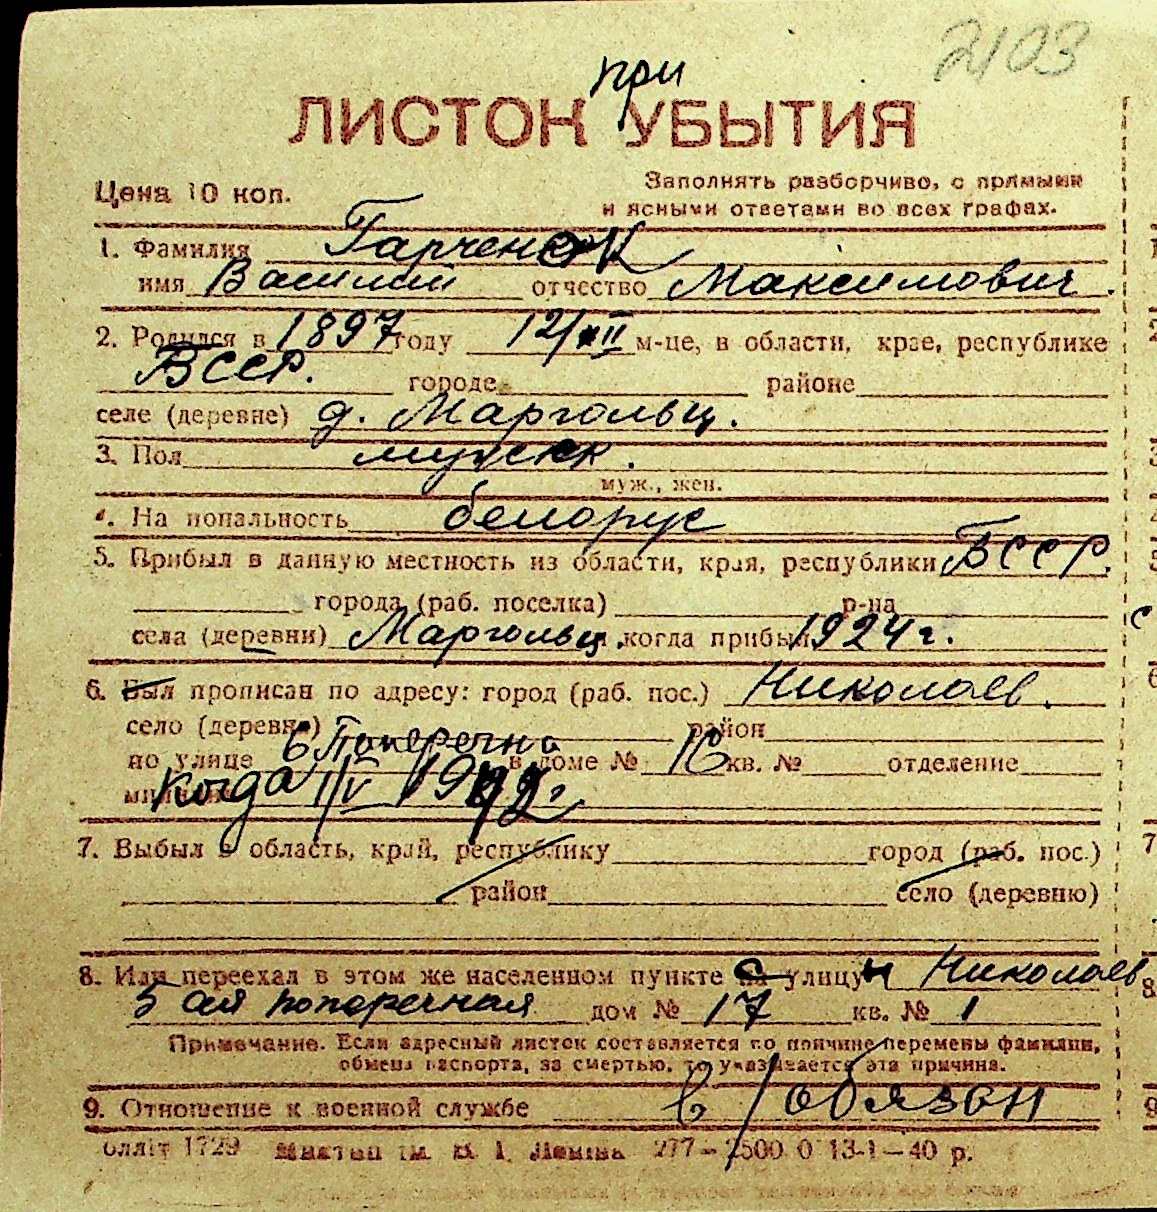 2103
при
ЛИСТОК УБЫТИЯ
Цена 10 коп.
Заполнять разборчиво, с прямыми
и ясными ответами во всех графах.
1. Фамилия Гарченок
имя Василий отчество Максимович.
2. Родился в 1897 году 12/II м-це, в области, крае, республике
БССР. городе районе
селе (деревне) д. Маргольц.
3. Пол мужск.
муж., жен.
4. На иональность белорус
5. Прибыл в данную местность из области, края, республики БССР.
города (раб. поселка) р-на
села (деревни) Маргольц. когда прибыл 1924 г.
6. Был прописан по адресу: город (раб. пос.) Николаев.
село (деревня) район
по улице 6 Поперечна в доме № 16 кв. № отделение
Когда 1/V 1942 г
7. Выбыл в область, край, республику город (раб. пос.)
район село (деревню)
8. Или переехал в этом же населенном пункте на улицу Николаев
5 ая поперечная дом № 17 кв. № 1
Примечание. Если адресный листок составляется по причине перемены фамилии,
обмена паспорта, за смертью, то указывается эта причина.
9. Отношение к военной службе в/обязан
1729 277-2500 0 13-1-40 р.